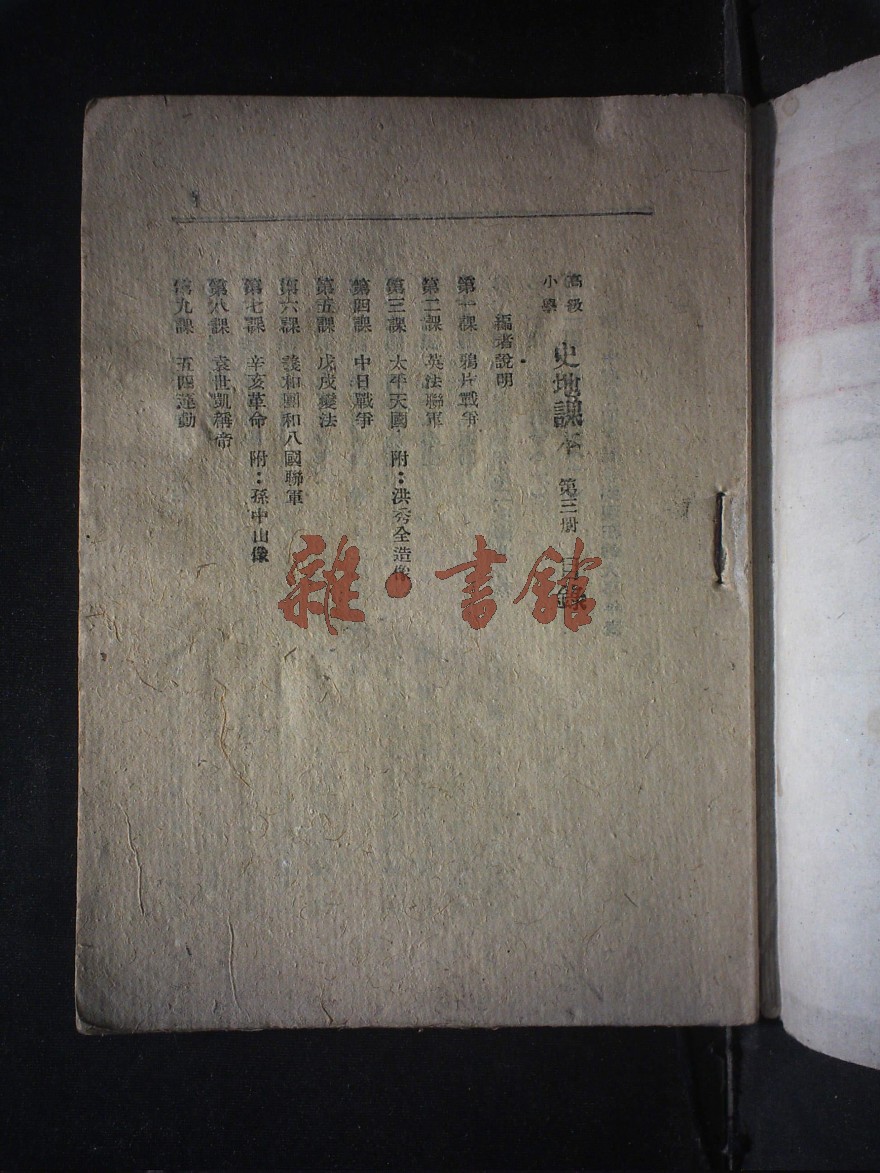 高級小學 史地課本 第三册 目錄
編者說明
第一課 鴉片戰爭
第二課 英法聯軍
第三課 太平天國 附：洪秀全造像
第四課 中日戰爭
第五課 戊戌變法
第六課 義和團和八國聯軍
第七課 辛亥革命 附：孫中山像
第八課 袁世凱稱帝
第九課 五四運動
雜·書館